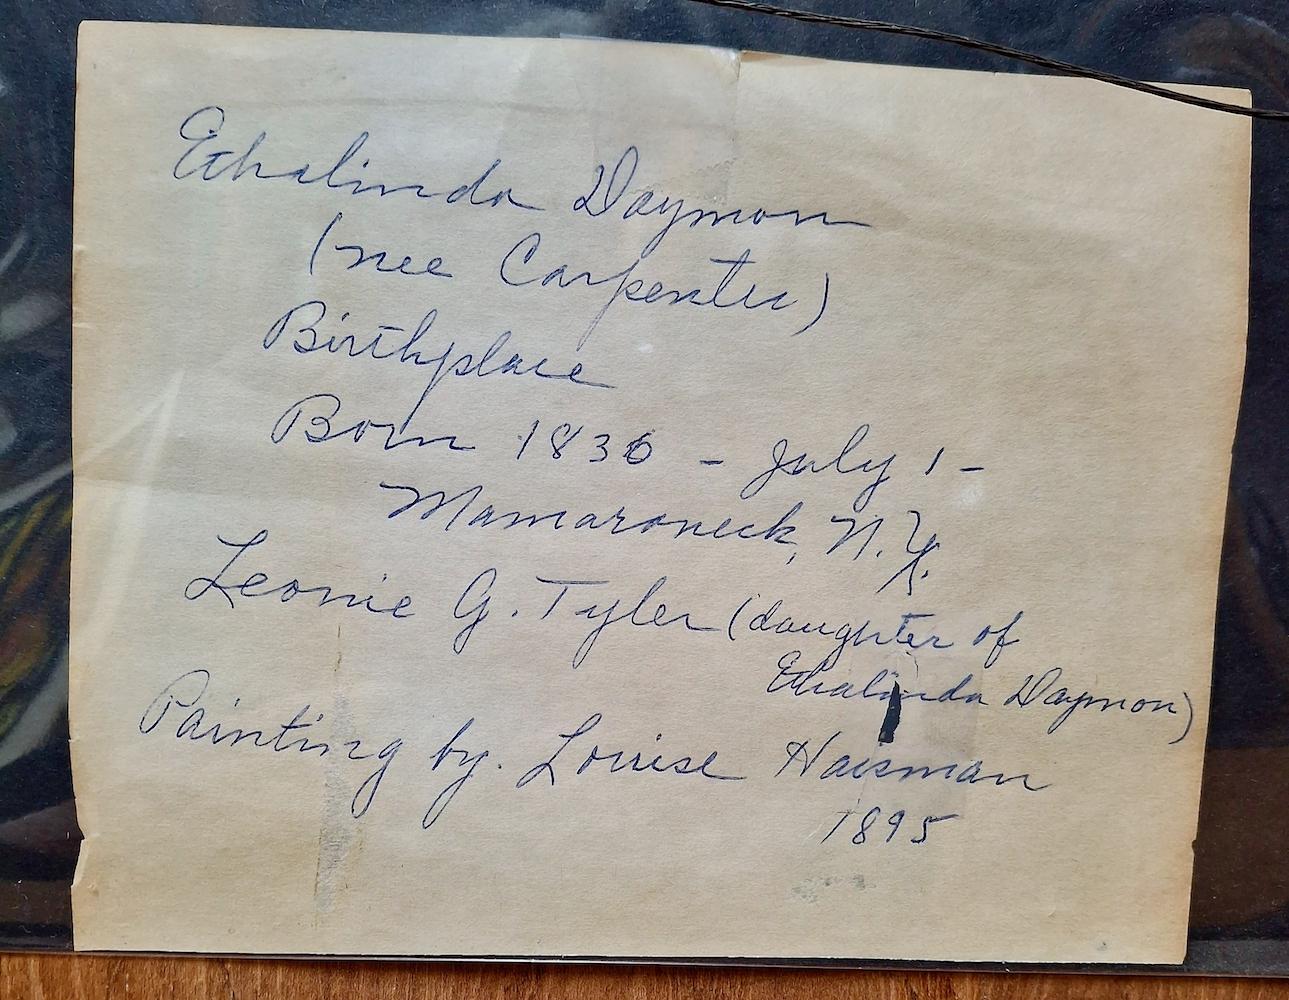 Ethalinda Daymon
(nee Carpenter)
Birthplace
Born 1836 - July 1 -
Mamaroneck, N.Y.
Leonie G. Tyler (daughter of
Ethalinda Daymon)
Painting by. Louise Haisman
1895